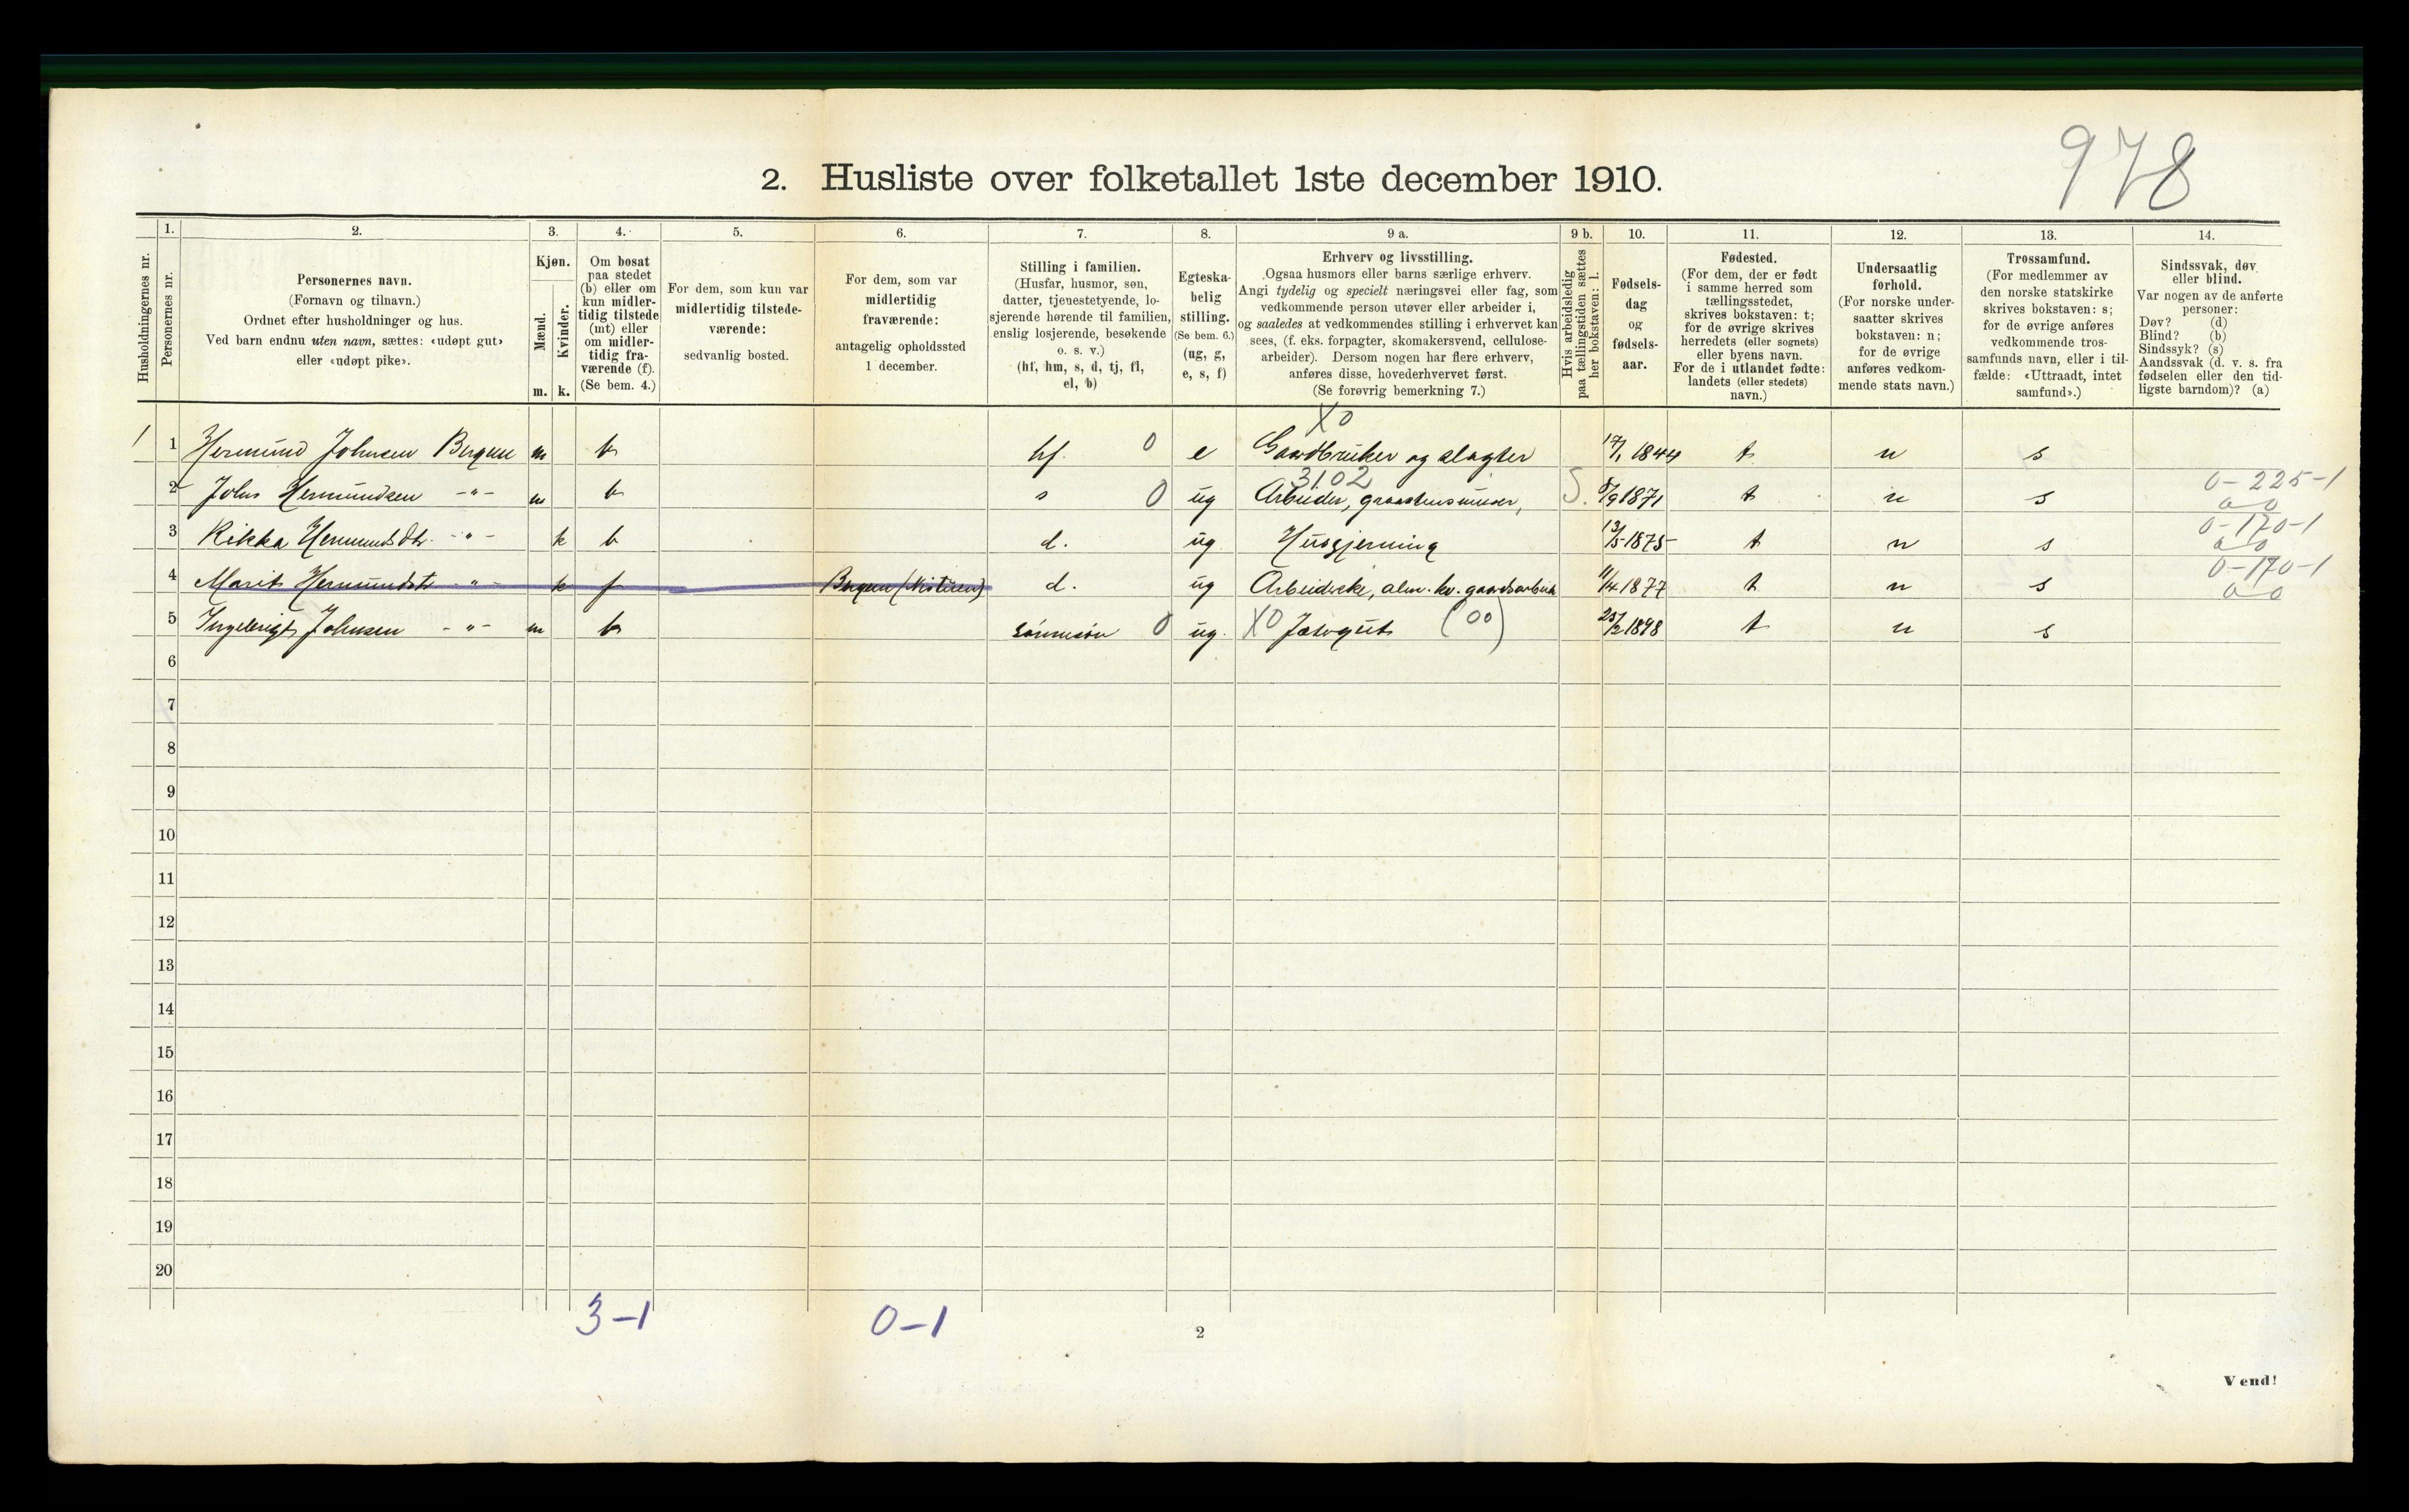 978
2. Husliste over folketallet 1ste december 1910.
Husholdningernes nr.
1. Personernes nr.
2. Personernes navn.
(Fornavn og tilnavn.)
Ordnet efter husholdninger og hus.
Ved barn endnu uten navn, sættes: «udøpt gut»
eller «udøpt pike».
3. Kjøn.
Mænd. m.
Kvinder. k.
4. Om bosat
paa stedet
(b) eller om
kun midler-
tidig tilstede
(mt) eller
om midler-
tidig fra-
værende (f).
(Se bem. 4.)
5. For dem, som kun var
midlertidig tilstede-
værende:
sedvanlig bosted.
6. For dem, som var
midlertidig
fraværende:
antagelig opholdssted
1 december.
7. Stilling i familien.
(Husfar, husmor, søn,
datter, tjenestetyende, lo-
sjerende hørende til familien,
enslig losjerende, besøkende
o. s. v.)
(hf, hm, s, d, tj, fl,
el, b)
8. Egteska-
belig
stilling.
(Se bem. 6.)
(ug, g,
e, s, f)
9 a. Erhverv og livsstilling.
Ogsaa husmors eller barns særlige erhverv.
Angi tydelig og specielt næringsvei eller fag, som
vedkommende person utøver eller arbeider i,
og saaledes at vedkommendes stilling i erhvervet kan
sees, (f. eks. forpagter, skomakersvend, cellulose-
arbeider). Dersom nogen har flere erhverv,
anføres disse, hovederhvervet først.
(Se forøvrig bemerkning 7.)
9 b. Hvis arbeidsledig
paa tællingstiden sættes
her bokstaven: l.
10. Fødsels-
dag
og
fødsels-
aar.
11. Fødested.
(For dem, der er født
i samme herred som
tællingsstedet,
skrives bokstaven: t;
for de øvrige skrives
herredets (eller sognets)
eller byens navn.
For de i utlandet fødte:
landets (eller stedets)
navn.)
12. Undersaatlig
forhold.
(For norske under-
saatter skrives
bokstaven: n;
for de øvrige
anføres vedkom-
mende stats navn.)
13. Trossamfund.
(For medlemmer av
den norske statskirke
skrives bokstaven: s;
for de øvrige anføres
vedkommende tros-
samfunds navn, eller i til-
fælde: «Uttraadt, intet
samfund».)
14. Sindssvak, døv
eller blind.
Var nogen av de anførte
personer:
Døv? (d)
Blind? (b)
Sindssyk? (s)
Aandssvak (d. v. s. fra
fødselen eller den tid-
ligste barndom)? (a)
X0
1 1 Hermund Johnsen Bergen m b hf. 0 e Gaardbruker og slagter 17/1 1844 t n s
3102 0-225-1
2 John Hermundsen -"- m b s 0 ug Arbeider, graastensmurer, S. 8/9 1871 t n s 0 0
0-170-1
3 Rikka Hermundsdtr. -"- k b d. ug Husgjerning 13/5-1875 t n s 0 0
0-170-1
4 Marit Hermundsdtr -"- k f Bergen d. ug Arbeiderske, alm. kv. gaardsarbeide 11/4 1877 t n s 0 0
5 Ingebrigt Johnsen -"- m b sønnesøn 0 ug. X0 Jætergut (00) 25/2 1898 t n s
6
7
8
9
10
11
12
13
14
15
16
17
18
19
20
3-1 0-1
2
Vend!